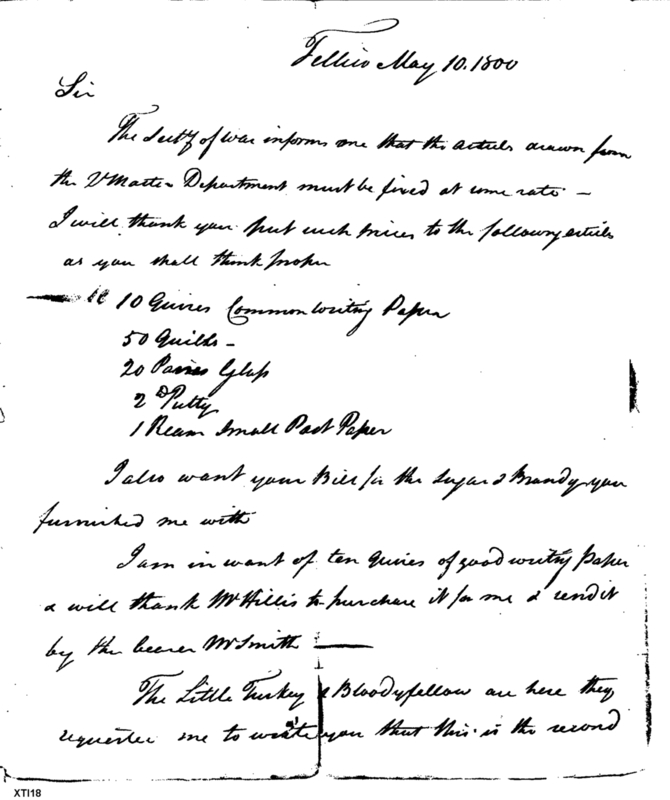 Tellico May 10. 1800
Sir
The Secty of War informs me that the articles drawn from
the Qr Masters Department must be fixed at some rate —
I will thank you put such prices to the following articles
as you shall think proper
10 Quires Common Writing Paper
50 Quills —
20 Panes Glass
2 lb Putty
1 Ream Small Post Paper
I also want your Bill for the Sugar & Brandy you
furnished me with
I am in want of ten Quires of good writing paper
& will thank Mr Hillis to purchase it for me & send it
by the bearer Mr Smith —
The Little Turkey & Bloodyfellow are here they
requested me to write you that this is the second
XTI18